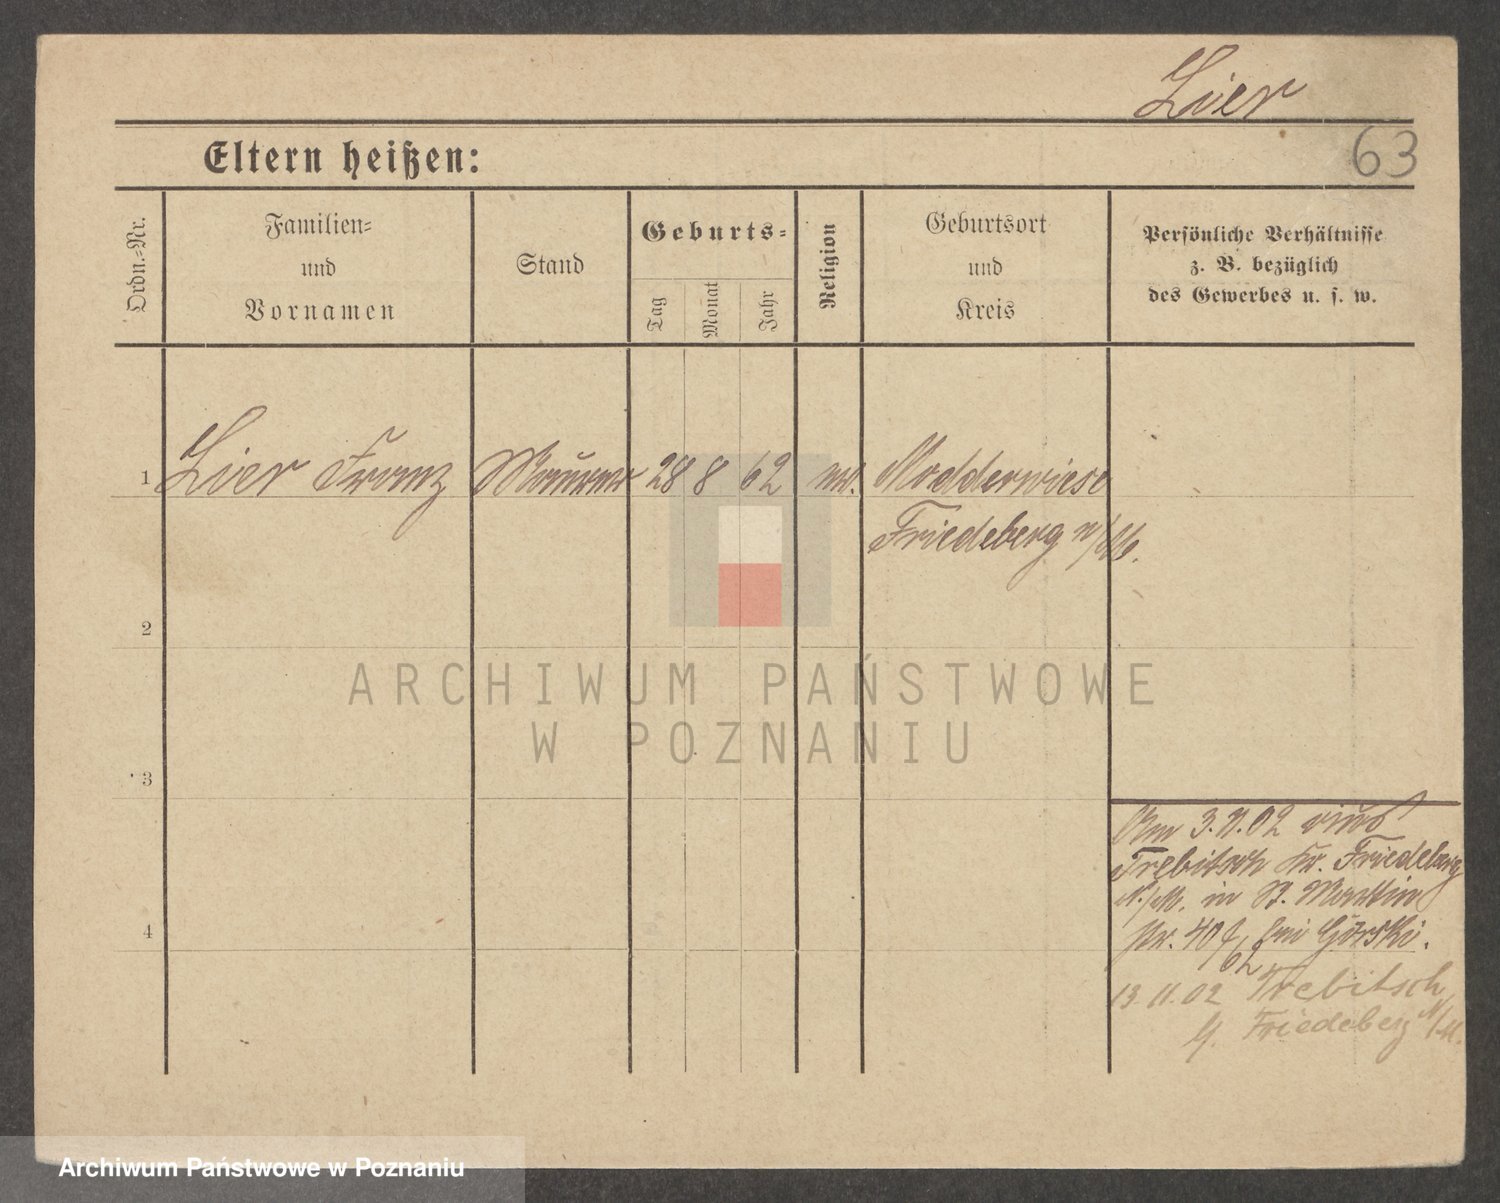 Lier
63
Eltern heißen:
Ordn.-Nr.
Familien-
und
Vornamen
Stand
Geburts-
Tag
Monat
Jahr
Religion
Geburtsort
und
Kreis
Persönliche Verhältnisse
z. B. bezüglich
des Gewerbes u. s. w.
1 Lier Franz Maurer 28 8 62 ev. Modderwiese
Friedeberg N/M.
2
3
4
Am 3.11.02 aus
Trebitsch Kr. Friedeberg
N./M. in St. Martin
40 bei Górski.
13.11.02 Trebitsch
Friedeberg N/M.
ARCHIWUM PAŃSTWOWE
W POZNANIU
Archiwum Państwowe w Poznaniu